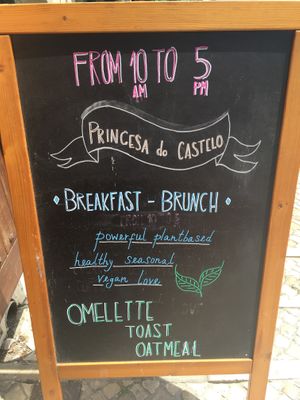 FROM 10 TO 5
AM PM
PRINCESA do CASTELO
BREAKFAST - BRUNCH
powerful plantbased
healthy seasonal
vegan love
OMELETTE
TOAST
OATMEAL